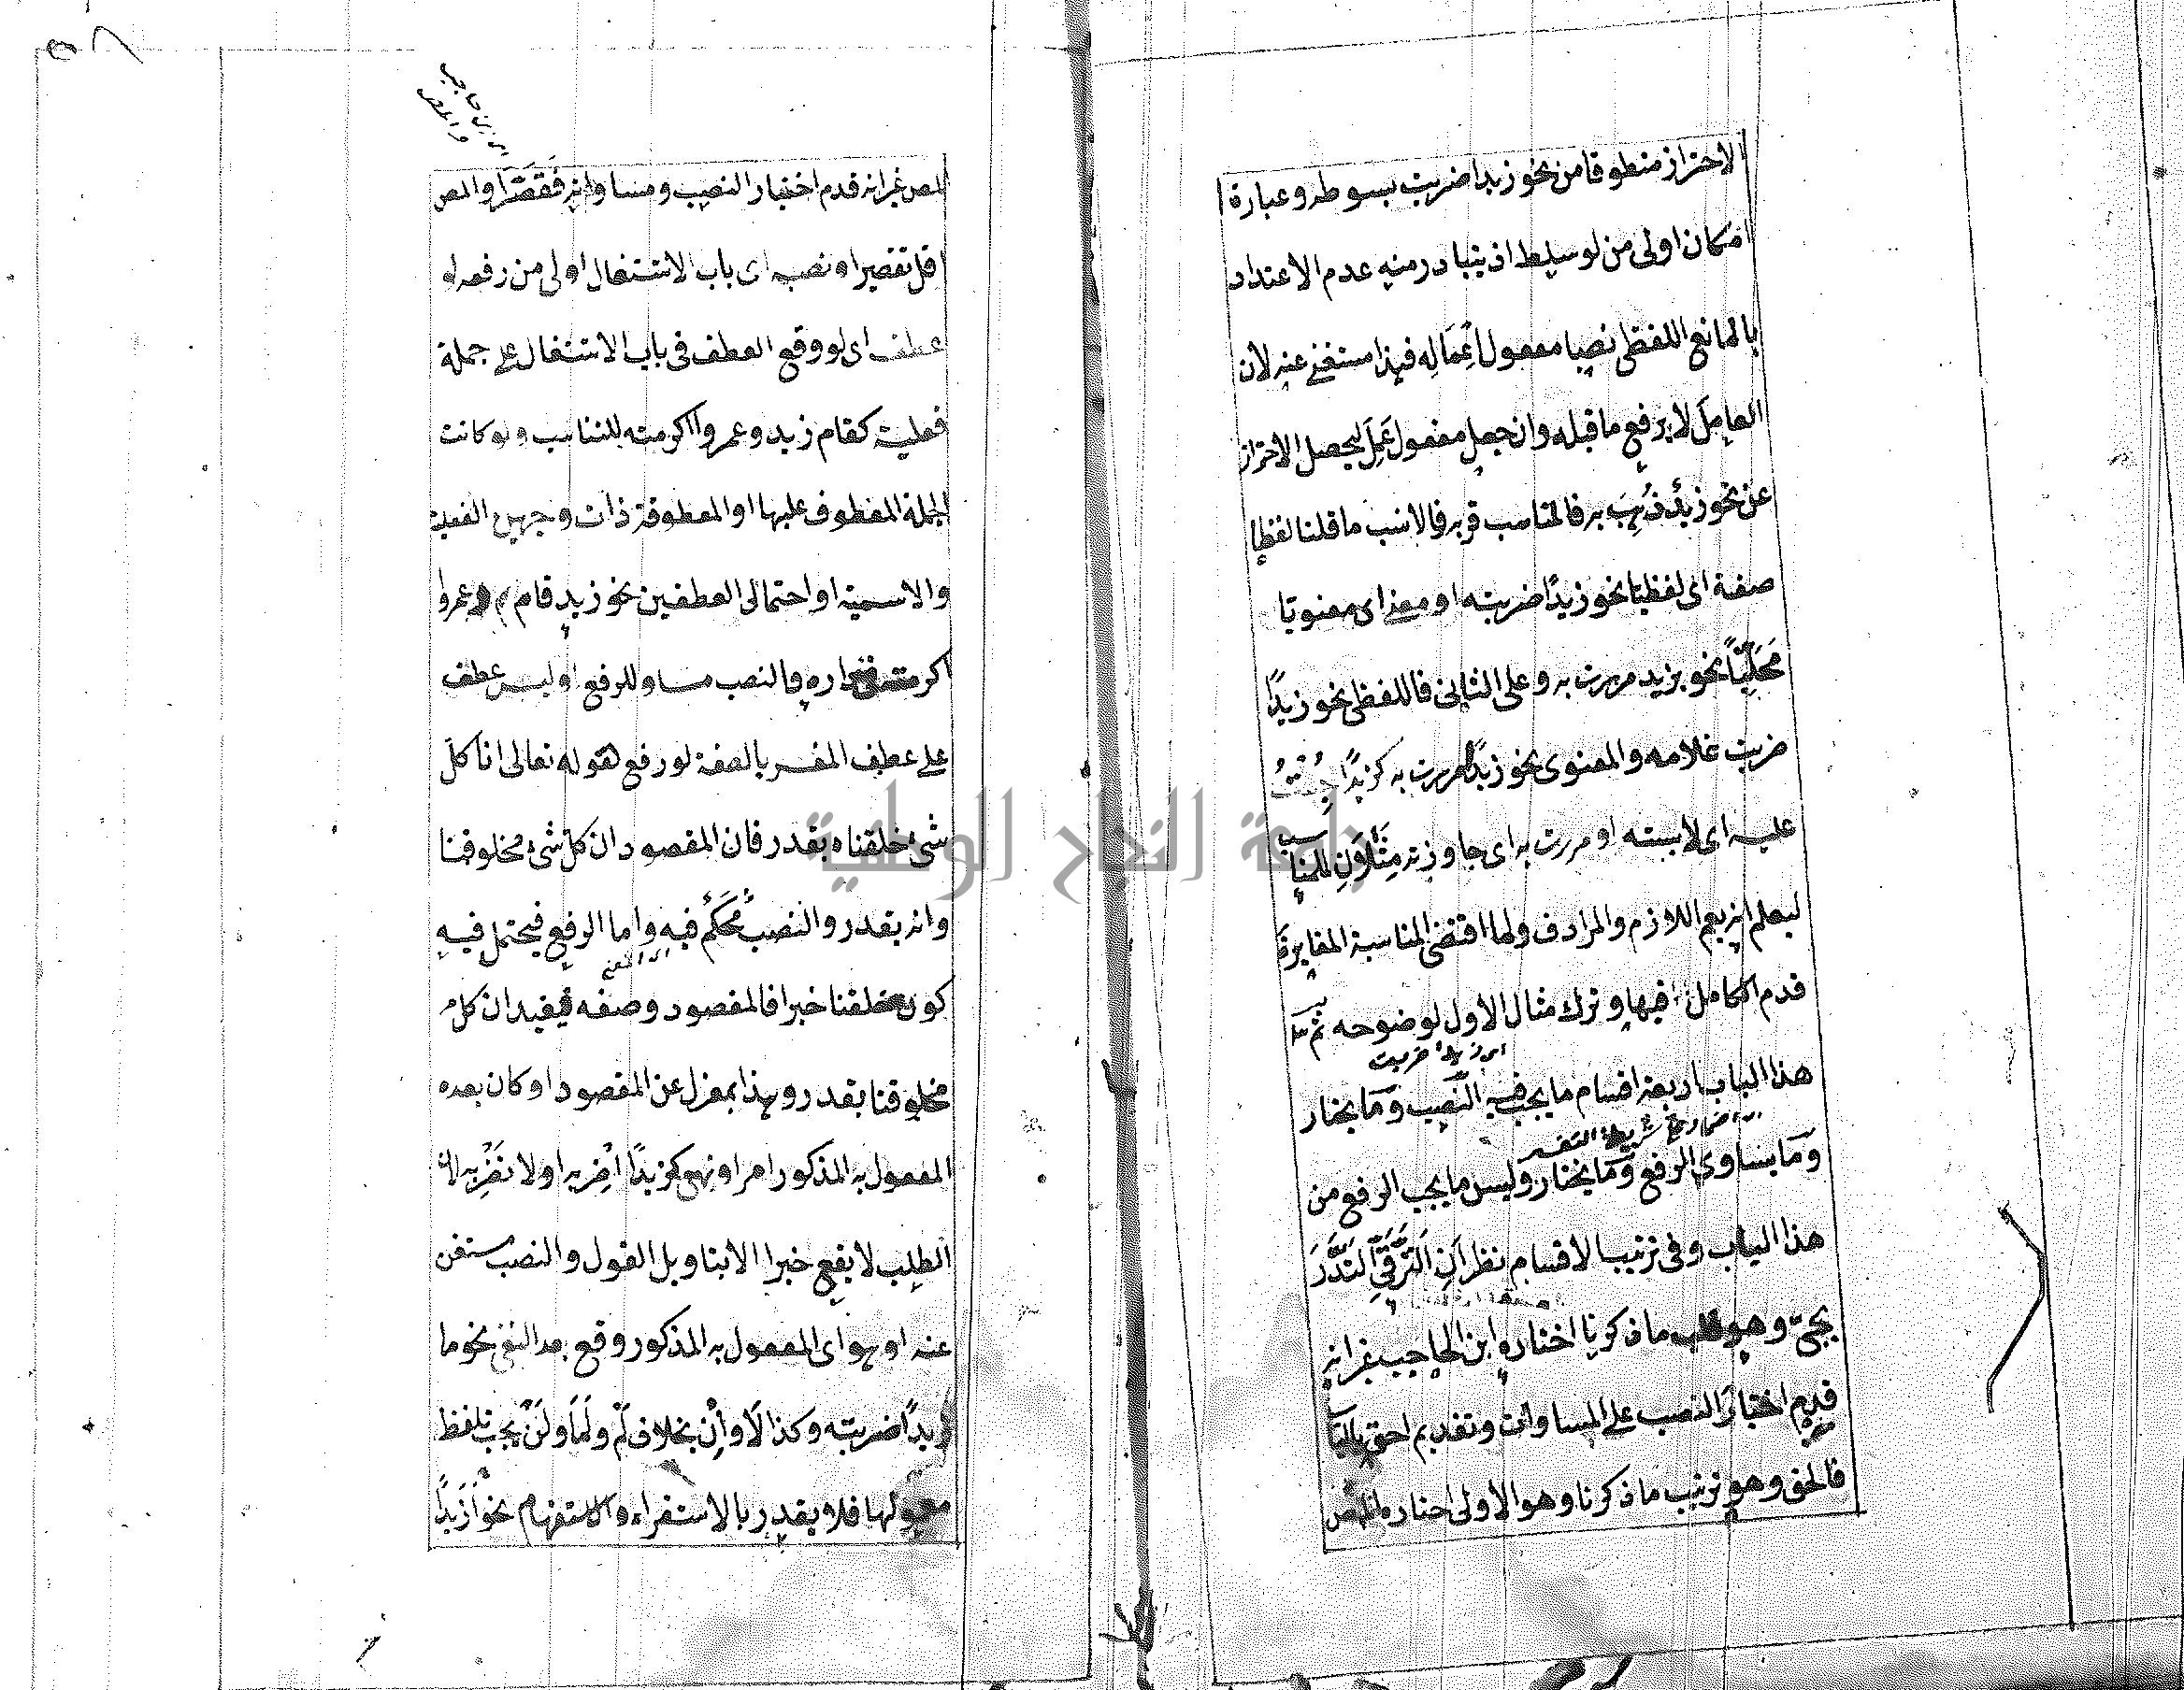 الاحتراز منطوقا من نحو زيدا ضربت بسوطه وعبارة
امكان اولى من لو سلط اذ يتبادر منه عدم الاعتداد
بالمانع اللفظى نصبا مفعول اعماله فهذا مستغنى عنه لان
العامل لا يرفع ما قبله وان جعل مفعول عمل ليحصل الاحتراز
عن نحو زيد ذهب به فالمناسب قربه فالانسب ما قلنا لفظا
صفة اى لفظيا نحو زيدا ضربته او معنى اى معنويا
محليا نحو بزيد مررت به وعلى الثانى فاللفظى نحو زيدا
ضربت غلامه والمعنوى نحو زيدا مررت به كزيدا جئت
عليه اى لابسته او مررت به اى جاوزته مثلا ون للمناسب
ليعلم انه يعم اللازم والمرادف ولما اقتضى المناسبة المغايرة
قدم الكامل فيها وترك مثال الاول لوضوحه ثم
اى زيدا ضربت
هذا الباب اربعة اقسام ما يجب فيه النصب وما يختار
شريطة التفسير
وما يساوى الرفع وما يختار وليس ما يجب الرفع من
هذا الباب وفى ترتيب الاقسام نظر ان الترقى التدرّ
يجئ وهو ما ذكرنا اختاره ابن الحاجب غير انه
قدم اختيار النصب على المساوات وتقديم احق
فالحق وهو ترتيب ما ذكرنا وهو الاولى اختاره المص
٥٨
ابن حاجب
والمص
المص غير انه قدم اختيار النصب ومساواته فقصرا والمص
اقل تقصيرا ونصبه اى باب الاشتغال اولى من رفعه لو
عطف اى لو وقع العطف فى باب الاشتغال على جملة
فعلية كقام زيد وعمروا اكرمته للتناسب ولو كانت
الجملة المعطوف عليها او المعطوفة ذات وجهين الفعلية
والاسمية او احتمالى العطفين نحو زيد قام وعمروا
اكرمته فى داره فالنصب مساو للرفع او ليس عطف
على عطف المفسر بالصفة لو رفع كقوله تعالى انا كل
شئ خلقناه بقدر فان المقصود ان كل شئ مخلوقنا
وانه بقدر والنصب محكم فيه واما الرفع فيحتمل فيه
كون خلقنا خبرا فالمقصود وصفه فيفيد ان كل
مخلوقنا بقدر وهذا بمعزل عن المقصود او كان بعده
المفعول به المذكور امر او نهى كزيدا اضربه او لا تضربه لان
الطلب لا يقع خبرا الا بتاويل القول والنصب مستغن
عنه او هو اى المفعول به المذكور وقع بعد النفى نحو ما
زيدا ضربته وكذا لا وان بخلاف لم ولما ولن يجب تلفظ
معمولها فلا يقدر بالاستقراء والاستفهام نحو ازيدا